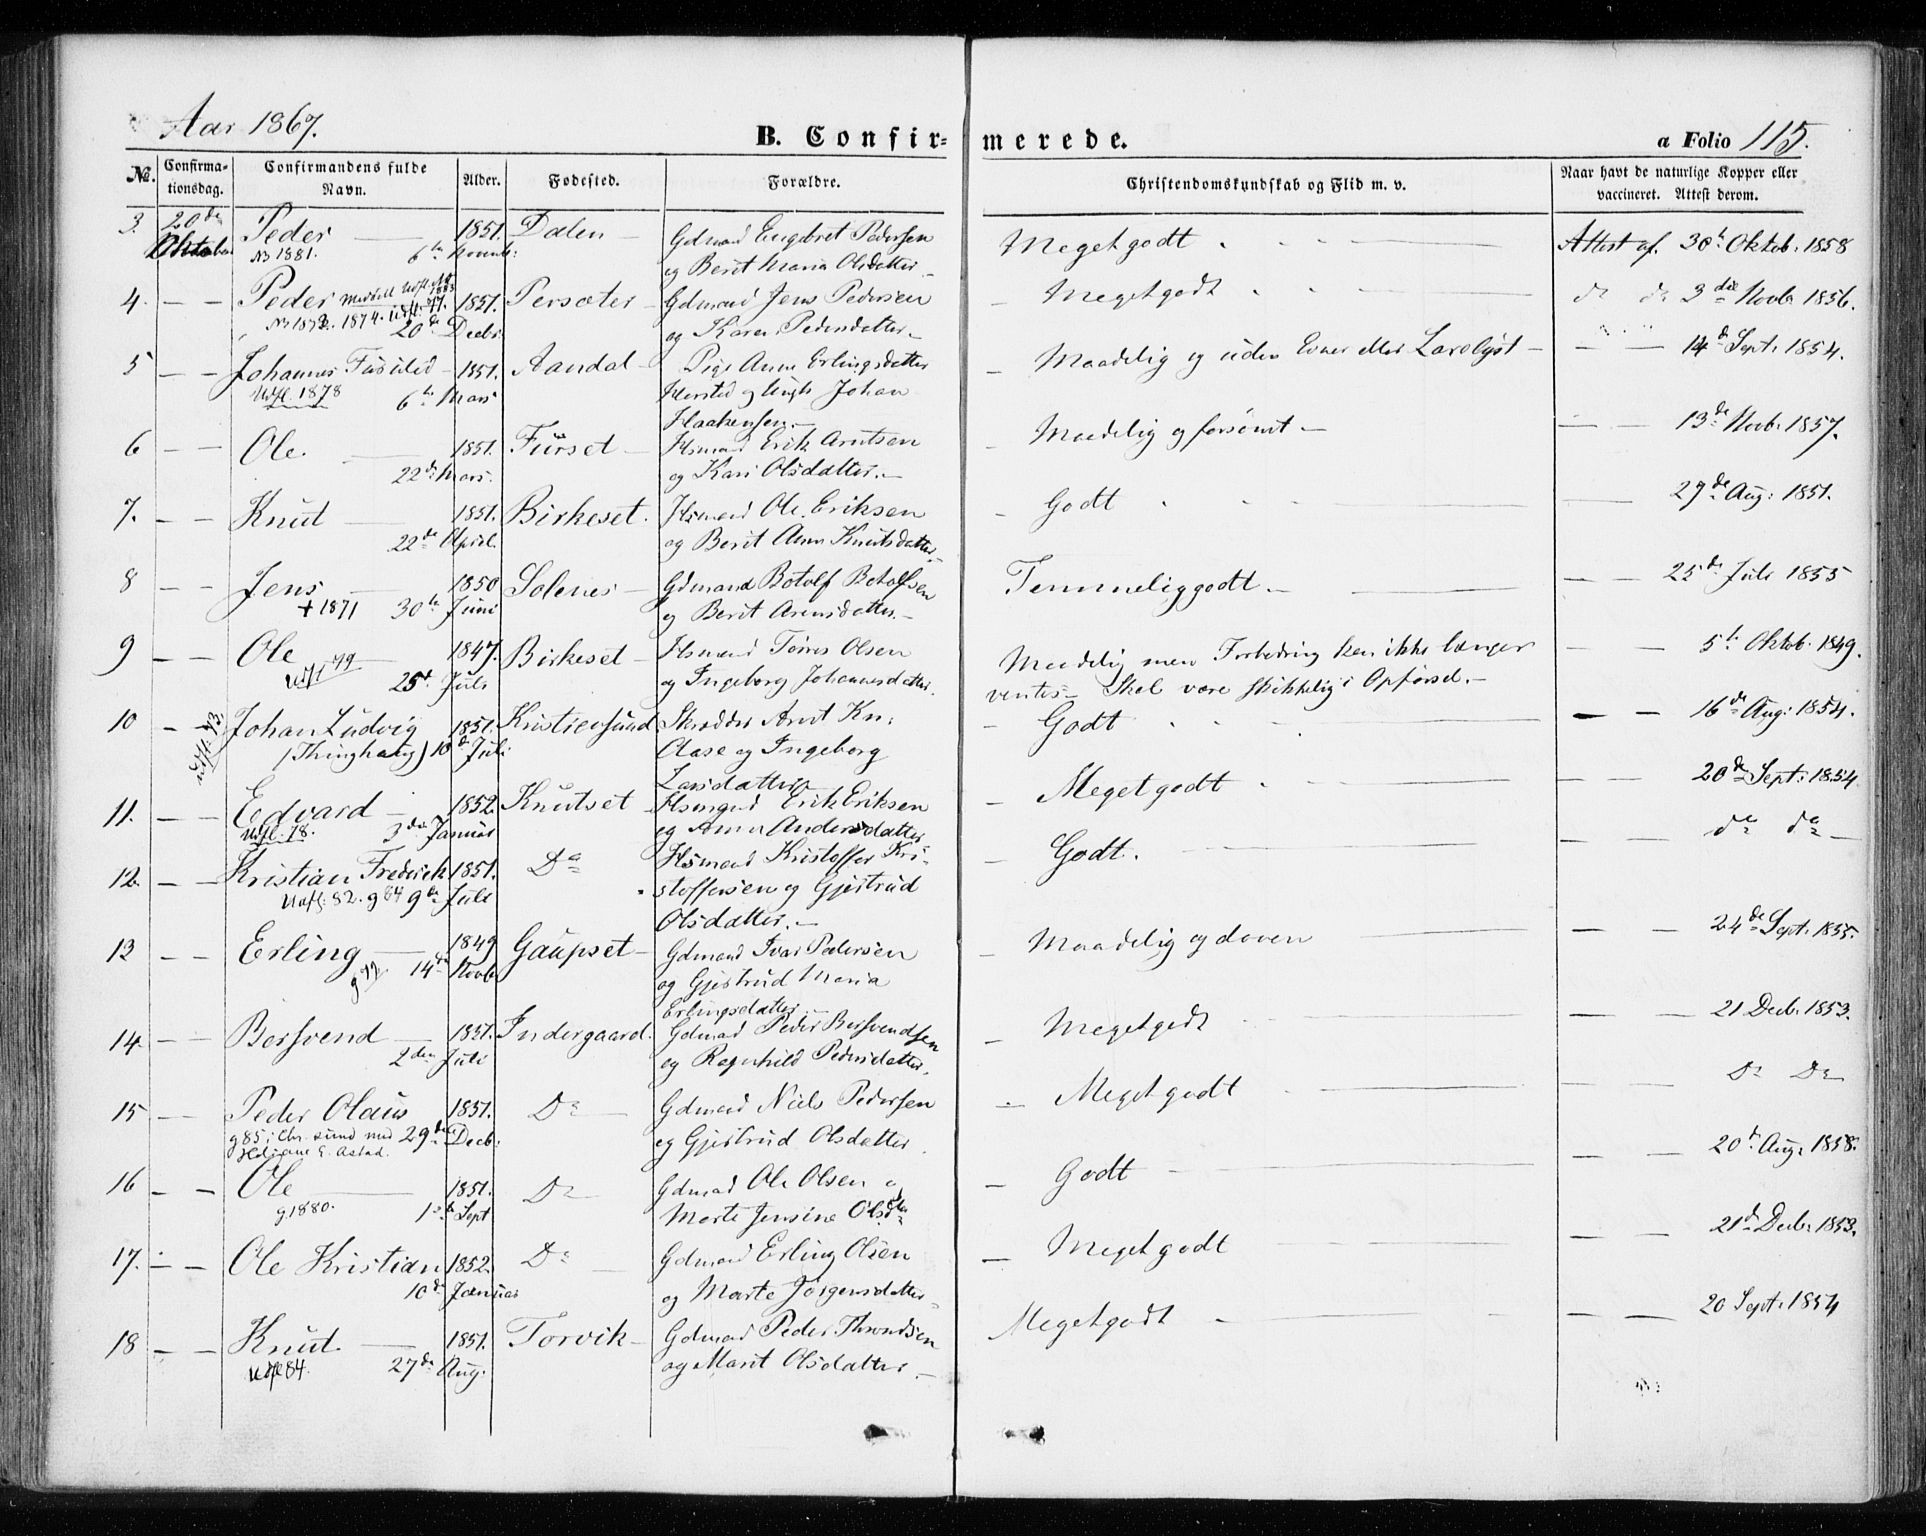 Aar 1867.
B. Confirmerede.
a Folio 115.
№. Confirmationsdag. Confirmandens fulde Navn. Alder. Fødested. Forældre. Christendomskundskab og Flid m. v. Naar havt de naturlige Kopper eller vaccineret. Attest derom.
3. 20de Peder — 1851. Dalen — Gdmand Engebret Pedersen Meget godt Attest af. 30te Oktob. 1858
Oktober No 1881. 6te Novemb: og Berit Maria Olsdatter —
4. — — Peder 1851. Persæter — Gdmand Jens Pedersen — Meget godt do do 3die Novbr 1856.
20de Decbr og Karen Pedersdatter —
5 — — Johannes 1851. Aandal — Pige Anne Erlingsdatter Maadelig og uden Evner eller Lærelyst — — — 14de Sept. 1854.
Udfl. 1878 6te Mars og Johan
Haakensen. —
6 — — Ole. — 1851. Furset — Hsmand Erik Arntsen — Maadelig og forsømt — — — 13de Novb. 1857.
22de Mars. og Kari Olsdatter. —
7. — — Knut — 1851. Birkeset. Hsmand Ole Eriksen — Godt — 29de Aug: 1851.
22de April. og Berit Anne Knutsdatter —
8 — — Jens — 1850 Solenes — Gdmand Botolf Botolfsen Temmelig godt. — — — 25de Juli 1855
+ 1871 30te Juni og Berit Arensdatter. —
9 — — Ole 1847. Birkeset — Hsmand Tøres Olsen Maadelig men Forbedring kan ikke længer — — 5te Oktob. 1849.
Udfl 79 25de Juli og Ingeborg Johannesdatter. ventes — Skal være skikkelig i Opførsel. —
10 — Johan Ludvig 1851. Kristiensund Skrædder Arnt Kn: — Godt — — 16de Aug: 1854.
(Thinghaug) 10de Juli Aase og Ingeborg
Larsdatter —
11. — — Edvard — 1852. Knutset — Hsmand Erik Eriksen — Meget godt — — 20de Sept: 1854
Udfl. 78. 3die Januar og Anne Andersdatter
12. — — Kristian Frederick 1851. Do Hsmand Kristoffer Kri- — Godt. — — do do —
Udfl: 82. g 84 9de Juli stoffersen og Gjertrud
Olsdatter. —
13 — — Erling — 1849 Gaupset — Gdmand Ivar Pedersen — Maadelig og doven — — 24de Sept. 1855.
14de Novb og Gjertrud Maria
Erlingsdatter
14. — — Bersvend — 1851. Indergaard. Gdmand Peder Bersvendsen — Meget godt — — 21 Decb. 1853.
2den Juli og Ragnhild Pedersdatter.
15 — — Peder Olaus 1851. Do — Gdmand Niels Pedersen — Meget godt — — Do Do
g 85 i Chr. sund med 29de Decb: og Gjertrud Olsdatter.
E. Astad.
16 — — Ole — 1851. Do — Gdmand Ole Olsen og — Godt — — 20de Aug. 1858.
g. 1880. 1ste Sept Marte Jensine Olsdtr
17. — — Ole Kristian 1852. Do — Gdmand Erling Olsen — Meget godt — — 21de Decb: 1853.
10de Januar og Marte Jørgensdatter —
18 — — Knut — 1851. Torvik — Gdmand Peder Throndsen Meget godt — — — 20 Sept. 1854
Udfl 84. 27de Aug. og Marit Olsdatter —